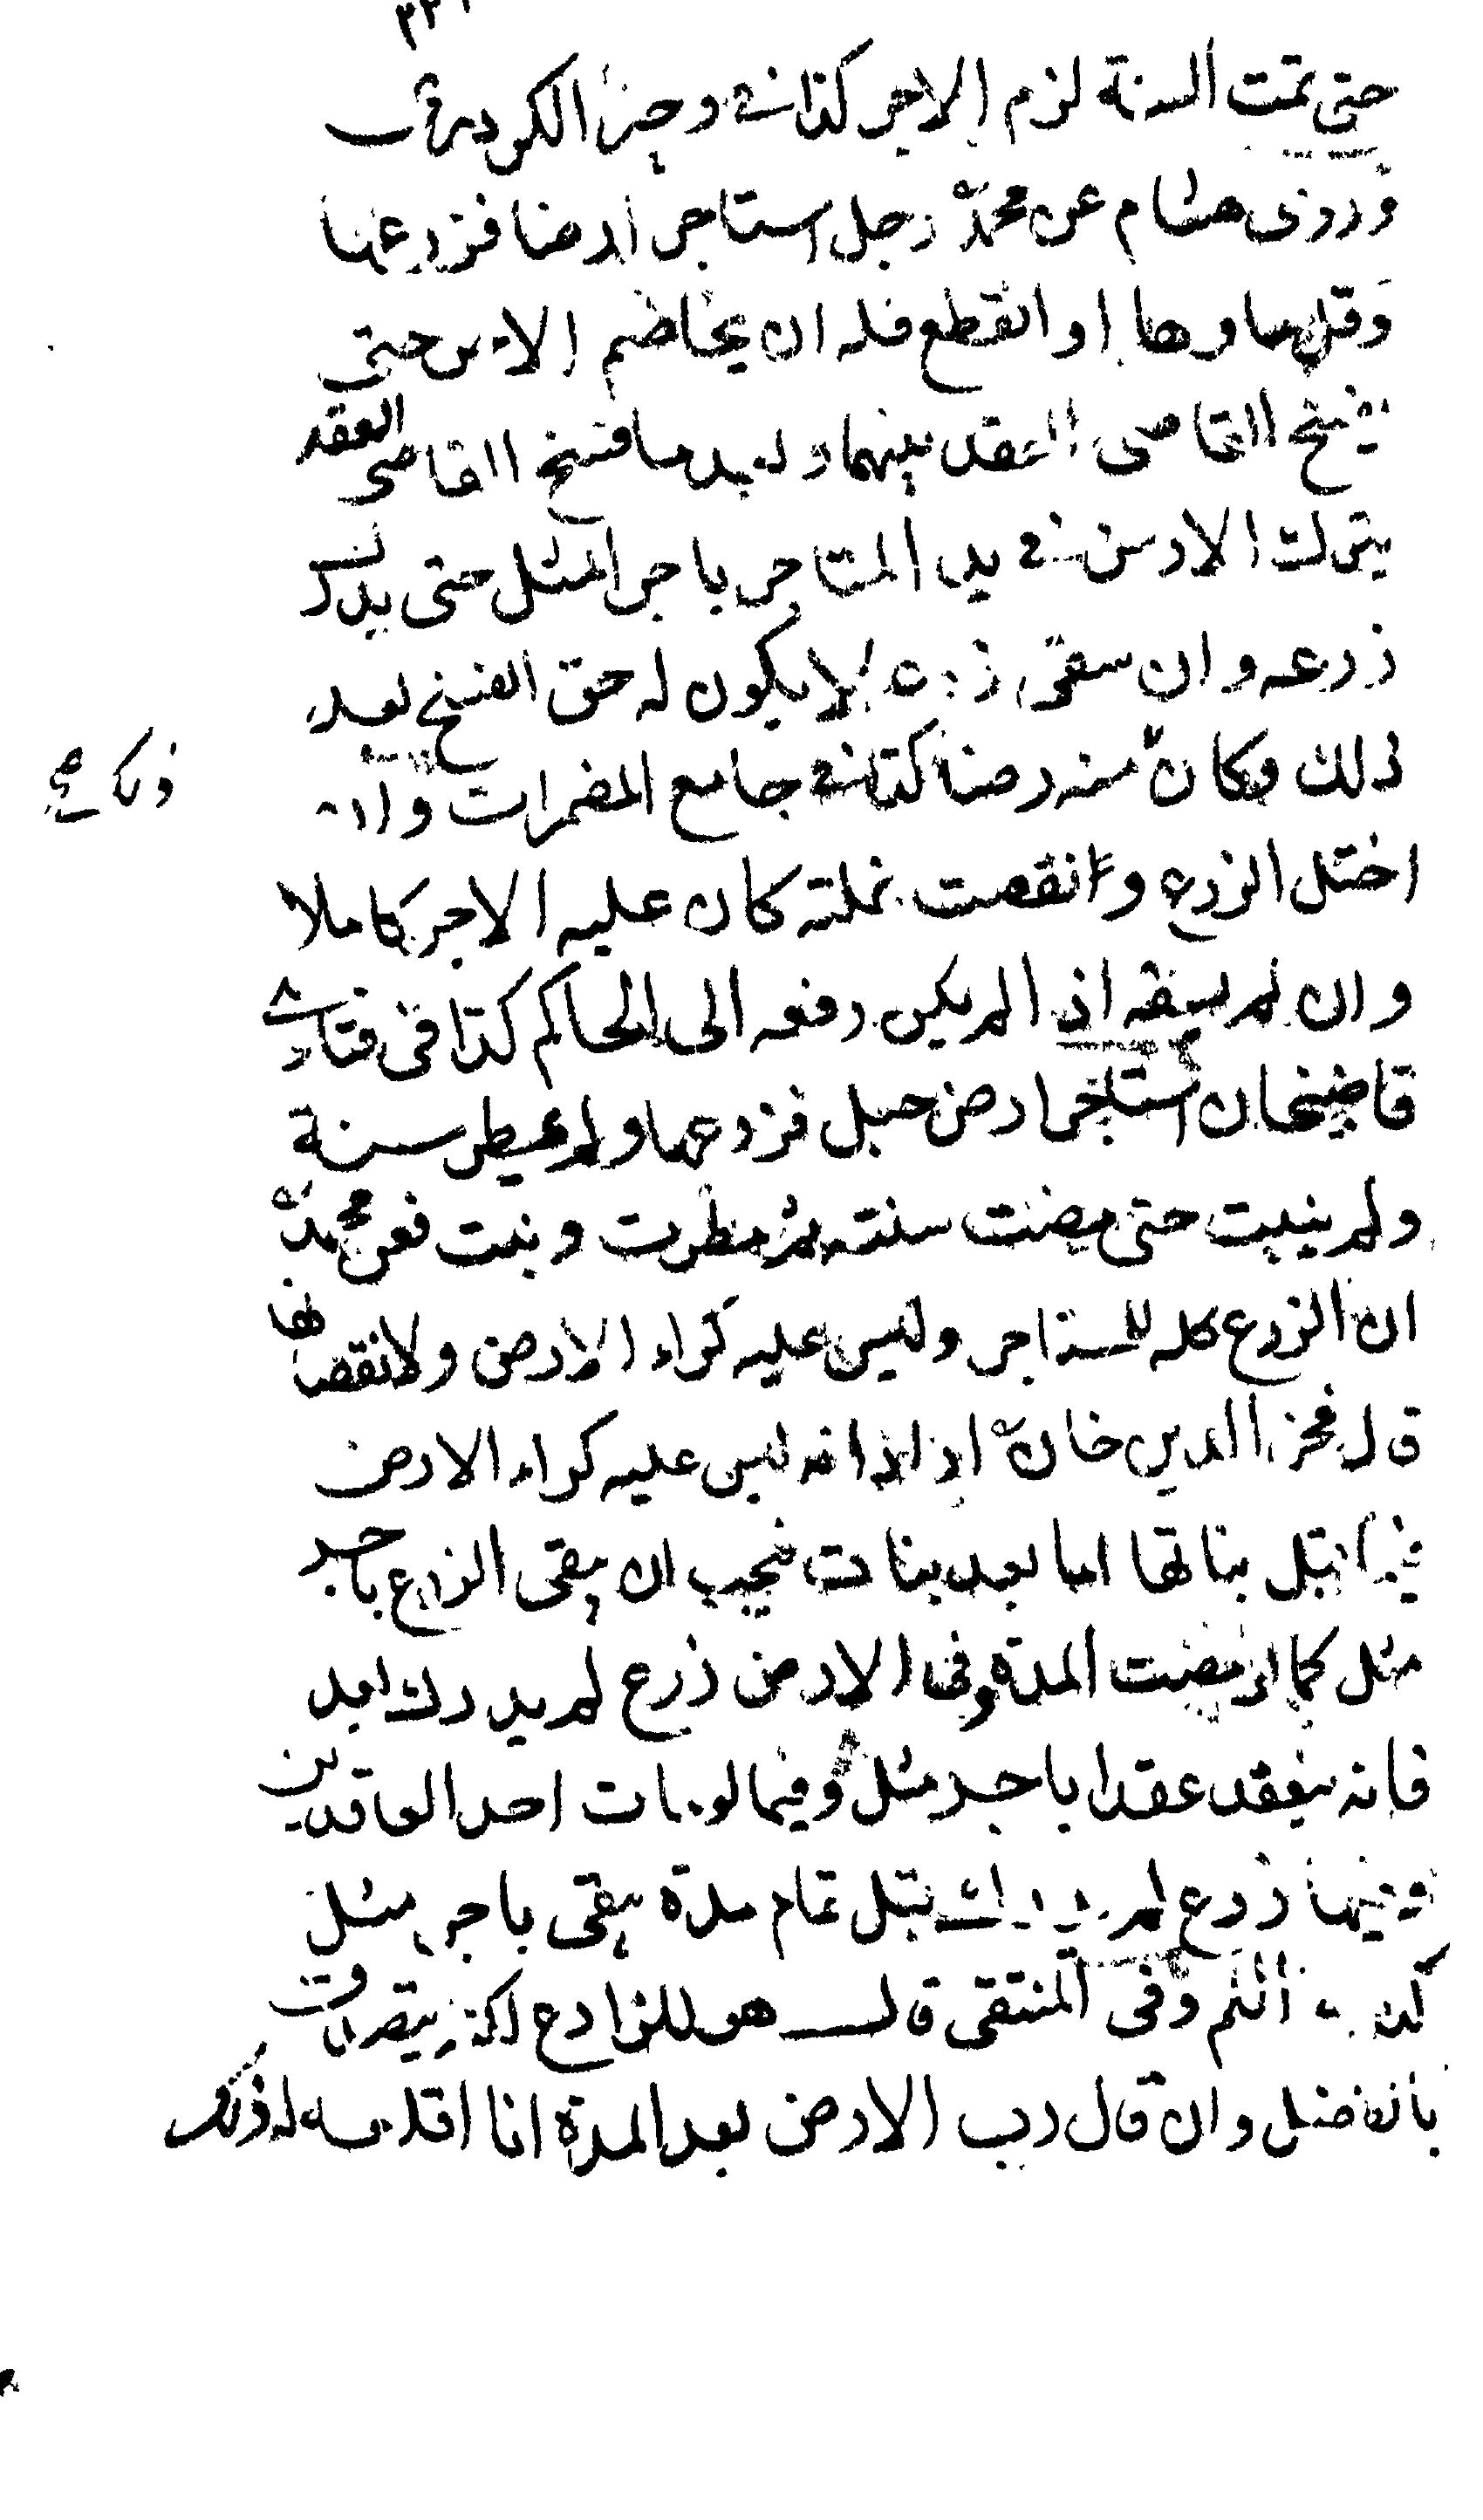 حتى تمت السنة لزم الاجر كذا في وجيز الكردري
وروى هشام عن محمد رجل استاجر ارضا فزرعها
وقل ماوها او انقطع فله ان يخاصم الاجر حتى
يفسخ القاضي العقد بينهما وبعد ما فسخ القاضي العقد
يترك الارض في يد المستاجر باجر المثل حتى يدرك
زرعه وان سقى زرعه لا يكون له حق الفسخ بعد
ذلك وكان منه رضا كذا في جامع المضمرات وان
ذلك صح
اختل الزرع وانقصت غلته كان عليه الاجر كاملا
وان لم يسقه اذا لم يكن رفعه الى الحاكم كذا في فتاوى
قاضيخان استاجر ارض جبل فزرعها ولم يمطر سنة
ولم ينبت حتى مضت سنته ثم مطرت ونبت فعن محمد
ان الزرع كله للمستاجر وليس عليه كراء الارض ولا نقصانها
قال فخر الدين خان اراد انه ليس عليه كراء الارض
قبل نباتها اما بعد نبات فيجب ان يبقى الزرع باجر
مثل كما اذ مضت المدة وفي الارض زرع لم يدرك بعد
فانه ينعقد عقدا باجر مثل وفيما لو مات احد العاقدين
وفيها زرع لم يدرك قبل تمام مدة يبقى باجر مثل
كذا وفي المنتقى قال هو للزارع لكنه يتصدق
بالفضل وان قال رب الارض بعد المدة انا اقلعه له ذلك